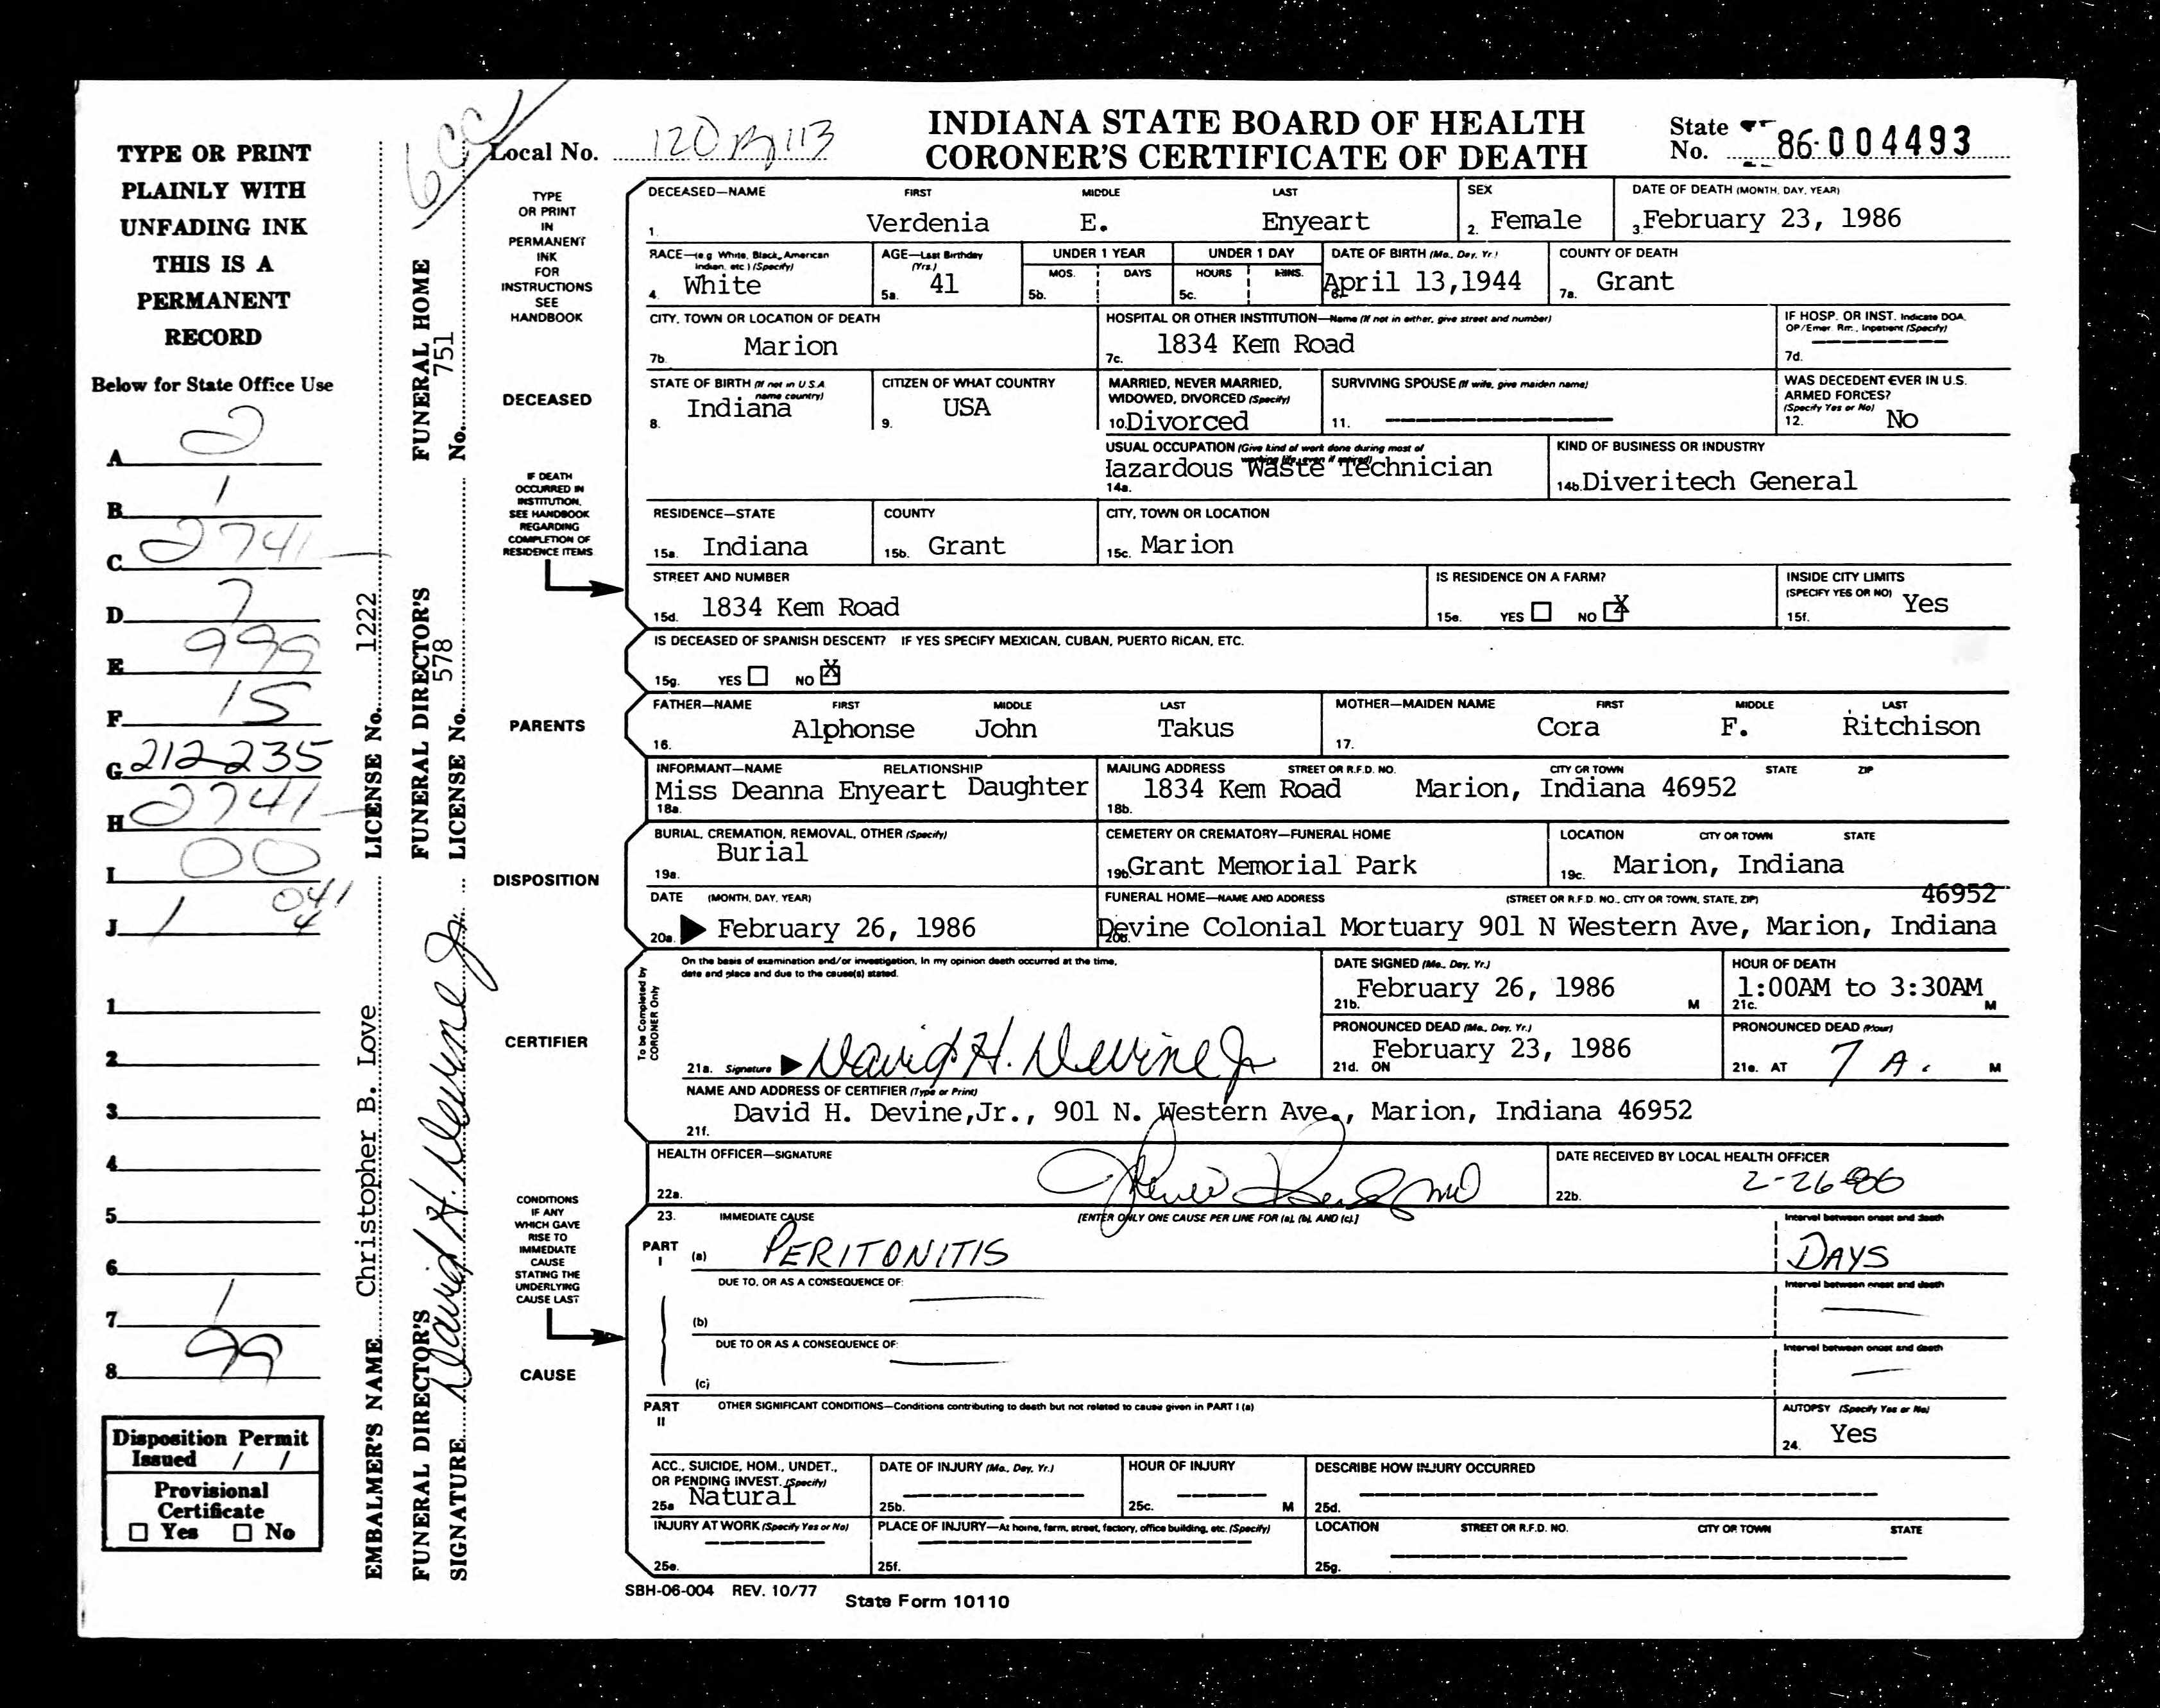 INDIANA STATE BOARD OF HEALTH
CORONER'S CERTIFICATE OF DEATH
Local No. 120
State No. 86-004493
6CC
TYPE OR PRINT
PLAINLY WITH
UNFADING INK
THIS IS A
PERMANENT
RECORD
Below for State Office Use
A 2
B 1
C 2741
D 7
E 999
F 15
G 212-235
H 2741
I 00
J 1 041 4
1
2
3
4
5
6
7 1
8 99
Disposition Permit
Issued / /
Provisional
Certificate
☐ Yes ☐ No
EMBALMER'S NAME Christopher B. Love LICENSE No. 1222
FUNERAL DIRECTOR'S
SIGNATURE David H. Devine Jr.
FUNERAL DIRECTOR'S
LICENSE No. 578
FUNERAL HOME
No. 751
TYPE
OR PRINT
IN
PERMANENT
INK
FOR
INSTRUCTIONS
SEE
HANDBOOK
DECEASED
IF DEATH
OCCURRED IN
INSTITUTION,
SEE HANDBOOK
REGARDING
COMPLETION OF
RESIDENCE ITEMS
PARENTS
DISPOSITION
CERTIFIER
CONDITIONS
IF ANY
WHICH GAVE
RISE TO
IMMEDIATE
CAUSE
STATING THE
UNDERLYING
CAUSE LAST
CAUSE
DECEASED—NAME FIRST MIDDLE LAST
1. Verdenia E. Enyeart
SEX
2. Female
DATE OF DEATH (MONTH, DAY, YEAR)
3. February 23, 1986
RACE—(e.g. White, Black, American
Indian, etc.) (Specify)
4. White
AGE—Last Birthday
(Yrs.)
5a. 41
UNDER 1 YEAR
MOS. DAYS
5b.
UNDER 1 DAY
HOURS MINS.
5c.
DATE OF BIRTH (Mo., Day, Yr.)
6. April 13,1944
COUNTY OF DEATH
7a. Grant
CITY, TOWN OR LOCATION OF DEATH
7b. Marion
HOSPITAL OR OTHER INSTITUTION—Name (If not in either, give street and number)
7c. 1834 Kem Road
IF HOSP. OR INST. Indicate DOA,
OP/Emer. Rm., Inpatient (Specify)
7d.
STATE OF BIRTH (If not in U.S.A.
name country)
8. Indiana
CITIZEN OF WHAT COUNTRY
9. USA
MARRIED, NEVER MARRIED,
WIDOWED, DIVORCED (Specify)
10. Divorced
SURVIVING SPOUSE (If wife, give maiden name)
11.
WAS DECEDENT EVER IN U.S.
ARMED FORCES?
(Specify Yes or No)
12. No
USUAL OCCUPATION (Give kind of work done during most of
working life, even if retired)
14a. Hazardous Waste Technician
KIND OF BUSINESS OR INDUSTRY
14b. Diveritech General
RESIDENCE—STATE
15a. Indiana
COUNTY
15b. Grant
CITY, TOWN OR LOCATION
15c. Marion
STREET AND NUMBER
15d. 1834 Kem Road
IS RESIDENCE ON A FARM?
15e. YES ☐ NO ☒
INSIDE CITY LIMITS
(SPECIFY YES OR NO)
15f. Yes
IS DECEASED OF SPANISH DESCENT? IF YES SPECIFY MEXICAN, CUBAN, PUERTO RICAN, ETC.
15g. YES ☐ NO ☒
FATHER—NAME FIRST MIDDLE LAST
16. Alphonse John Takus
MOTHER—MAIDEN NAME FIRST MIDDLE LAST
17. Cora F. Ritchison
INFORMANT—NAME RELATIONSHIP
18a. Miss Deanna Enyeart Daughter
MAILING ADDRESS STREET OR R.F.D. NO. CITY OR TOWN STATE ZIP
18b. 1834 Kem Road Marion, Indiana 46952
BURIAL, CREMATION, REMOVAL, OTHER (Specify)
19a. Burial
CEMETERY OR CREMATORY—FUNERAL HOME
19b. Grant Memorial Park
LOCATION CITY OR TOWN STATE
19c. Marion, Indiana
DATE (MONTH, DAY, YEAR)
20a. February 26, 1986
FUNERAL HOME—NAME AND ADDRESS (STREET OR R.F.D. NO., CITY OR TOWN, STATE, ZIP) 46952
20b. Devine Colonial Mortuary 901 N Western Ave, Marion, Indiana
To be Completed by
CORONER Only
On the basis of examination and/or investigation, in my opinion death occurred at the time,
date and place and due to the cause(s) stated.
21a. Signature David H. Devine Jr
DATE SIGNED (Mo., Day, Yr.)
21b. February 26, 1986 M
HOUR OF DEATH
21c. 1:00AM to 3:30AM M
PRONOUNCED DEAD (Mo., Day, Yr.)
21d. ON February 23, 1986
PRONOUNCED DEAD (Hour)
21e. AT 7 A. M
NAME AND ADDRESS OF CERTIFIER (Type or Print)
21f. David H. Devine,Jr., 901 N. Western Ave., Marion, Indiana 46952
HEALTH OFFICER—SIGNATURE
22a. MD
DATE RECEIVED BY LOCAL HEALTH OFFICER
22b. 2-26-86
23. IMMEDIATE CAUSE [ENTER ONLY ONE CAUSE PER LINE FOR (a), (b), AND (c).] Interval between onset and death
PART I (a) PERITONITIS DAYS
DUE TO, OR AS A CONSEQUENCE OF: Interval between onset and death
(b)
DUE TO OR AS A CONSEQUENCE OF: Interval between onset and death
(c)
PART II OTHER SIGNIFICANT CONDITIONS—Conditions contributing to death but not related to cause given in PART I (a)
AUTOPSY (Specify Yes or No)
24. Yes
ACC., SUICIDE, HOM., UNDET.,
OR PENDING INVEST. (Specify)
25a Natural
DATE OF INJURY (Mo., Day, Yr.)
25b.
HOUR OF INJURY
25c. M
DESCRIBE HOW INJURY OCCURRED
25d.
INJURY AT WORK (Specify Yes or No)
25e.
PLACE OF INJURY—At home, farm, street, factory, office building, etc. (Specify)
25f.
LOCATION STREET OR R.F.D. NO. CITY OR TOWN STATE
25g.
SBH-06-004 REV. 10/77
State Form 10110